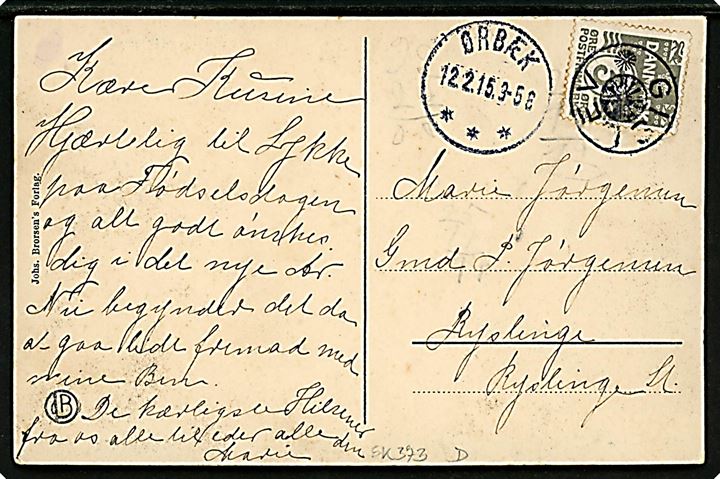 Kære Kusine
Hjærtelig til Lykke
paa Fødselsdagen
og alt godt ønskes
dig i det nye Aar.
Nu begynder det da
at gaa lidt fremad med
mine Ben.
De kærligste Hilsener
fra os alle til eder alle din
Marie
Johs. Brorsen's Forlag.
JBC
ØRBÆK
12.2.15.3-5 E
* * *
DANMARK
POSTFRIM
ØRE
Marie Jørgensen
Gmd P Jørgensen
Ryslinge
Ryslinge St.
SK373 D